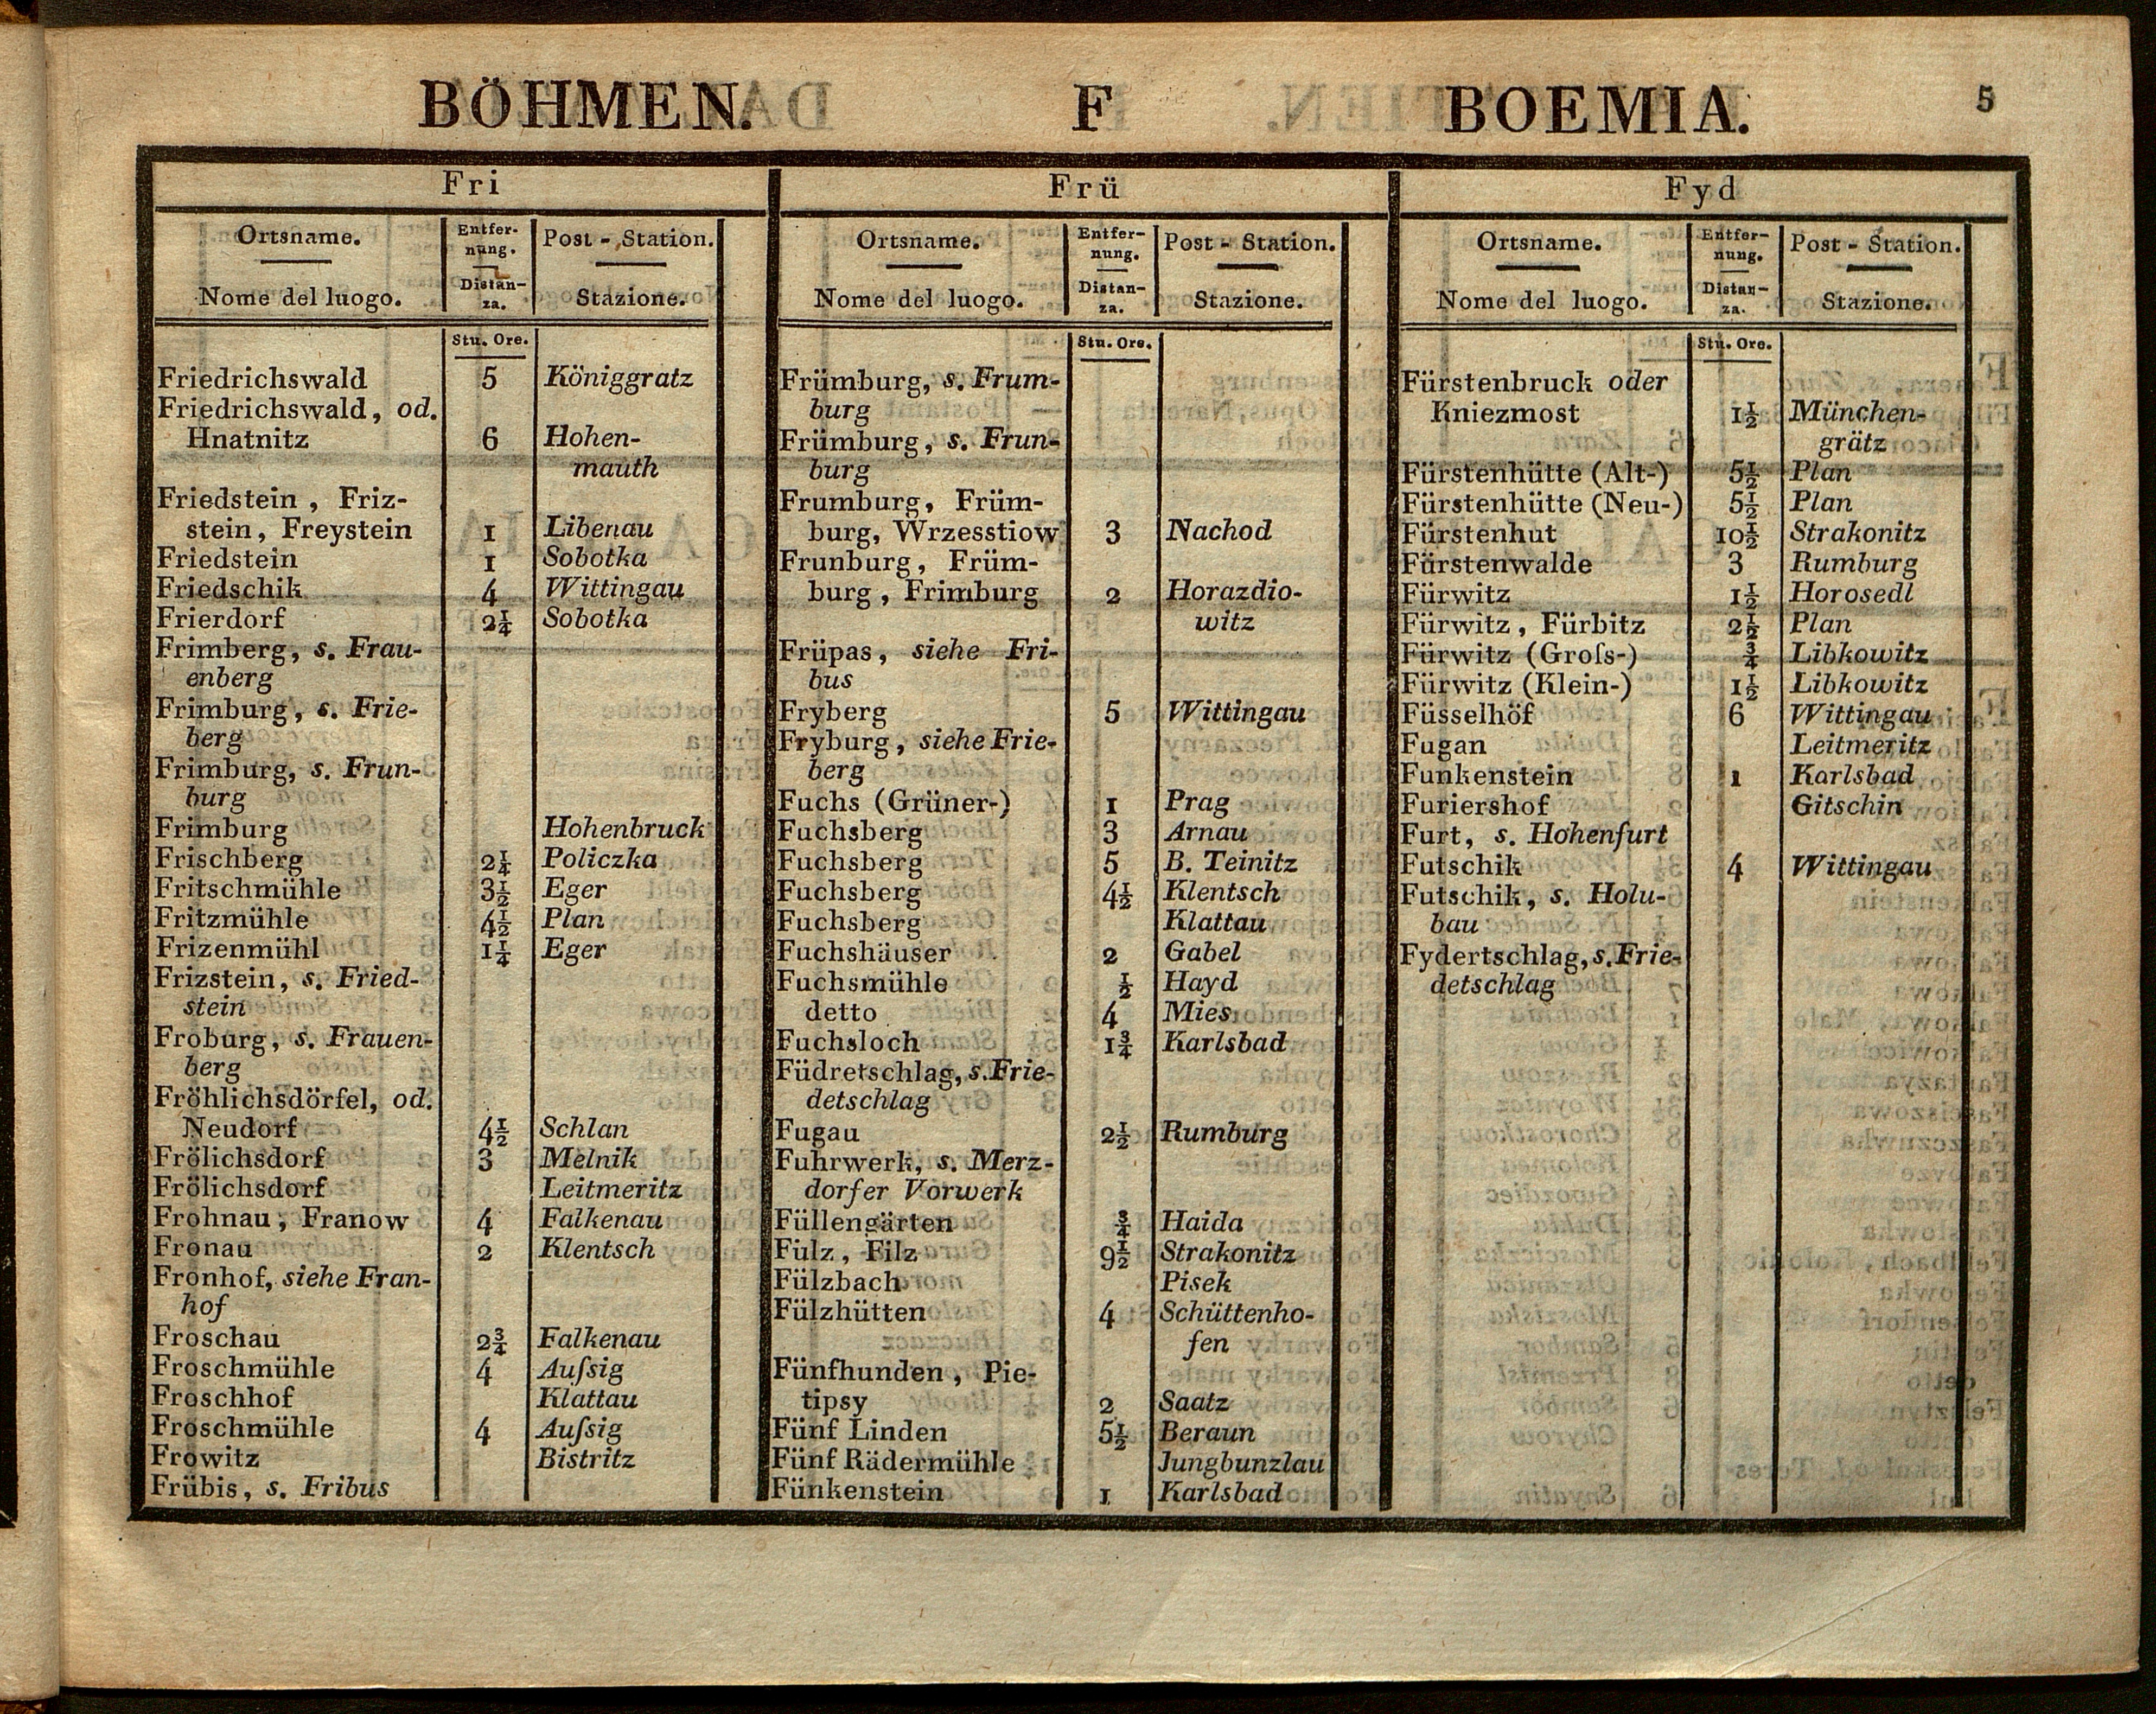 BÖHMEN. F BOEMIA. 5
Fri
Ortsname. Entfer- Post - Station.
nung.
Nome del luogo. Distan- Stazione.
za.
Stu. Ore.
Friedrichswald 5 Königgratz
Friedrichswald, od.
Hnatnitz 6 Hohen-
mauth
Friedstein, Friz-
stein, Freystein 1 Libenau
Friedstein 1 Sobotka
Friedschik 4 Wittingau
Frierdorf 2¼ Sobotka
Frimberg, s. Frau-
enberg
Frimburg, s. Frie-
berg
Frimburg, s. Frun-
burg
Frimburg Hohenbruck
Frischberg 2¼ Policzka
Fritschmühle 3½ Eger
Fritzmühle 4½ Plan
Frizenmühl 1¼ Eger
Frizstein, s. Fried-
stein
Froburg, s. Frauen-
berg
Fröhlichsdörfel, od.
Neudorf 4½ Schlan
Frölichsdorf 3 Melnik
Frölichsdorf Leitmeritz
Frohnau, Franow 4 Falkenau
Fronau 2 Klentsch
Fronhof, siehe Fran-
hof
Froschau 2¾ Falkenau
Froschmühle 4 Auſsig
Froschhof Klattau
Froschmühle 4 Auſsig
Frowitz Bistritz
Frübis, s. Fribus
Frü
Ortsname. Entfer- Post - Station.
nung.
Nome del luogo. Distan- Stazione.
za.
Stu. Ore.
Frümburg, s. Frum-
burg
Frümburg, s. Frun-
burg
Frumburg, Früm-
burg, Wrzesstiow 3 Nachod
Frunburg, Früm-
burg, Frimburg 2 Horazdio-
witz
Früpas, siehe Fri-
bus
Fryberg 5 Wittingau
Fryburg, siehe Frie-
berg
Fuchs (Grüner-) 1 Prag
Fuchsberg 3 Arnau
Fuchsberg 5 B. Teinitz
Fuchsberg 4½ Klentsch
Fuchsberg Klattau
Fuchshäuser 2 Gabel
Fuchsmühle ½ Hayd
detto 4 Mies
Fuchsloch 1¾ Karlsbad
Füdretschlag, s. Frie-
detschlag
Fugau 2½ Rumburg
Fuhrwerk, s. Merz-
dorfer Vorwerk
Füllengärten ¾ Haida
Fülz, Filz 9½ Strakonitz
Fülzbach Pisek
Fülzhütten 4 Schüttenho-
fen
Fünfhunden, Pie-
tipsy 2 Saatz
Fünf Linden 5½ Beraun
Fünf Rädermühle Jungbunzlau
Fünkenstein 1 Karlsbad
Fyd
Ortsname. Entfer- Post - Station.
nung.
Nome del luogo. Distan- Stazione.
za.
Stu. Ore.
Fürstenbruck oder
Kniezmost 1½ München-
grätz
Fürstenhütte (Alt-) 5½ Plan
Fürstenhütte (Neu-) 5½ Plan
Fürstenhut 10½ Strakonitz
Fürstenwalde 3 Rumburg
Fürwitz 1½ Horosedl
Fürwitz, Fürbitz 2½ Plan
Fürwitz (Groſs-) ¾ Libkowitz
Fürwitz (Klein-) 1½ Libkowitz
Füsselhöf 6 Wittingau
Fugan Leitmeritz
Funkenstein 1 Karlsbad
Furiershof Gitschin
Furt, s. Hohenfurt
Futschik 4 Wittingau
Futschik, s. Holu-
bau
Fydertschlag, s. Frie-
detschlag